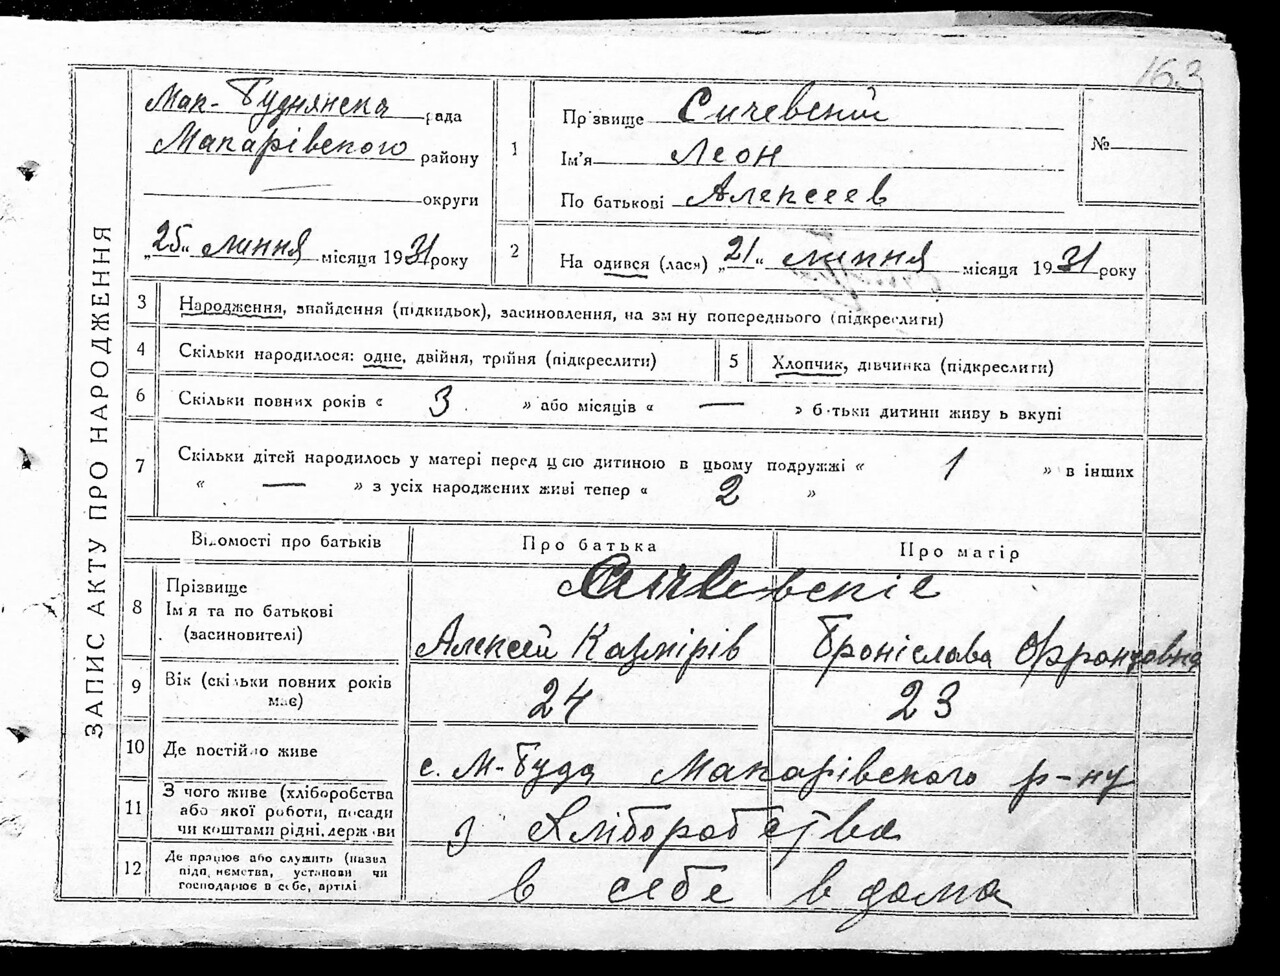 163
ЗАПИС АКТУ ПРО НАРОДЖЕННЯ
Мак-Буднянска рада
Макарівского району
округи
„25“ липня місяця 1931 року
1
Прізвище Сичевский
Ім'я Леон
По батькові Алексеев
№
2
На одився (лася) „21“ липня місяця 1931 року
3 Народження, знайдення (підкидьок), засиновлення, на зм ну попереднього (підкреслити)
4 Скільки народилося: одне, двійня, трійня (підкреслити)
5 Хлопчик, дівчинка (підкреслити)
6 Скільки повних років « 3 » або місяців « — » б тьки дитини живу ь вкупі
7 Скільки дітей народилось у матері перед цією дитиною в цьому подружжі « 1 » в інших
« — » з усіх народжених живі тепер « 2 »
Відомості про батьків Про батька Про матір
8 Прізвище Сичевскіе
Ім'я та по батькові
(засновителі) Алексей Казмірів Броніслава Францовна
9 Вік (скільки повних років
має) 24 23
10 Де постійно живе с. М-Буда Макарівского р-ну
11 З чого живе (хліборобства
або якої роботи, посади
чи коштами рідні, держ ви з Хліборобства
12 Де працює або служить (назва
підп иємства, установи чи
господарює в себе, артілі в себе в дома